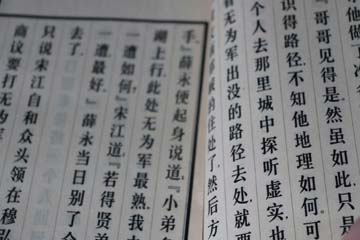 他做
『哥哥见得是。然虽如此，只是
识得路径，不知他地理如何。可
个人去那里城中探听虚实，也
看无为军出没的路径去处，就要
的住处了，然后方
手。』薛永便起身说道：『小弟
湖上行，此处无为军最熟。我
一遭如何？』宋江道：『若得贤弟
一遭最好。』薛永当日别了
去了。
只说宋江自和众头领在穆
商议要打无为军